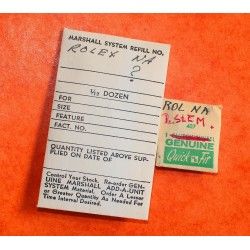 MARSHALL SYSTEM REFILL NO.
ROLEX NA
?
1/12 DOZEN
FOR
SIZE
FEATURE
FACT. NO.
QUANTITY LISTED ABOVE SUP-
PLIED ON DATE OF
Control Your Stock. Re-order GEN-
UINE MARSHALL ADD-A-UNIT
SYSTEM Material. Order A Lesser
or Greater Quantity As Needed For
Time Interval Desired.
ROL NA
STEM
GENUINE
Quick Fit